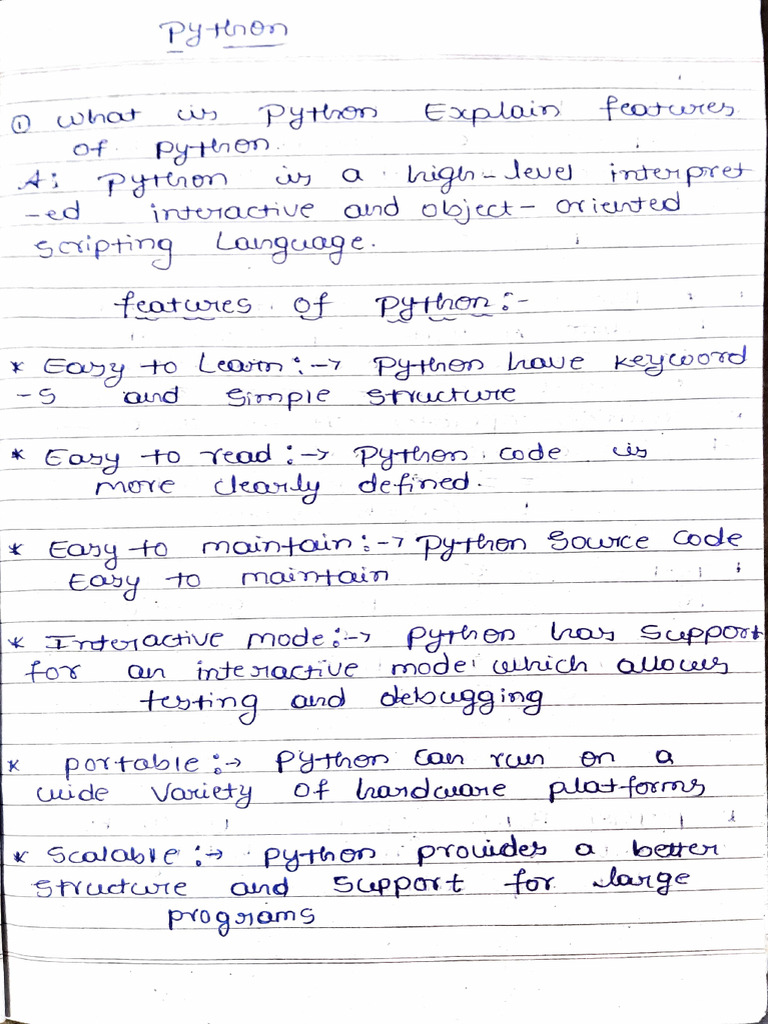 Python
① What is Python Explain features
of python.
A: Python is a high-level interpret
-ed interactive and object-oriented
scripting Language.
features of Python:-
* Easy to Learn:-> Python have keyword
-s and simple structure
* Easy to read:-> Python code is
more clearly defined.
* Easy to maintain:-> Python source code
Easy to maintain
* Interactive mode:-> Python has support
for an interactive mode which allows
testing and debugging
* portable:-> Python can run on a
wide variety of hardware platforms
* Scalable:-> python provides a better
structure and support for large
programs